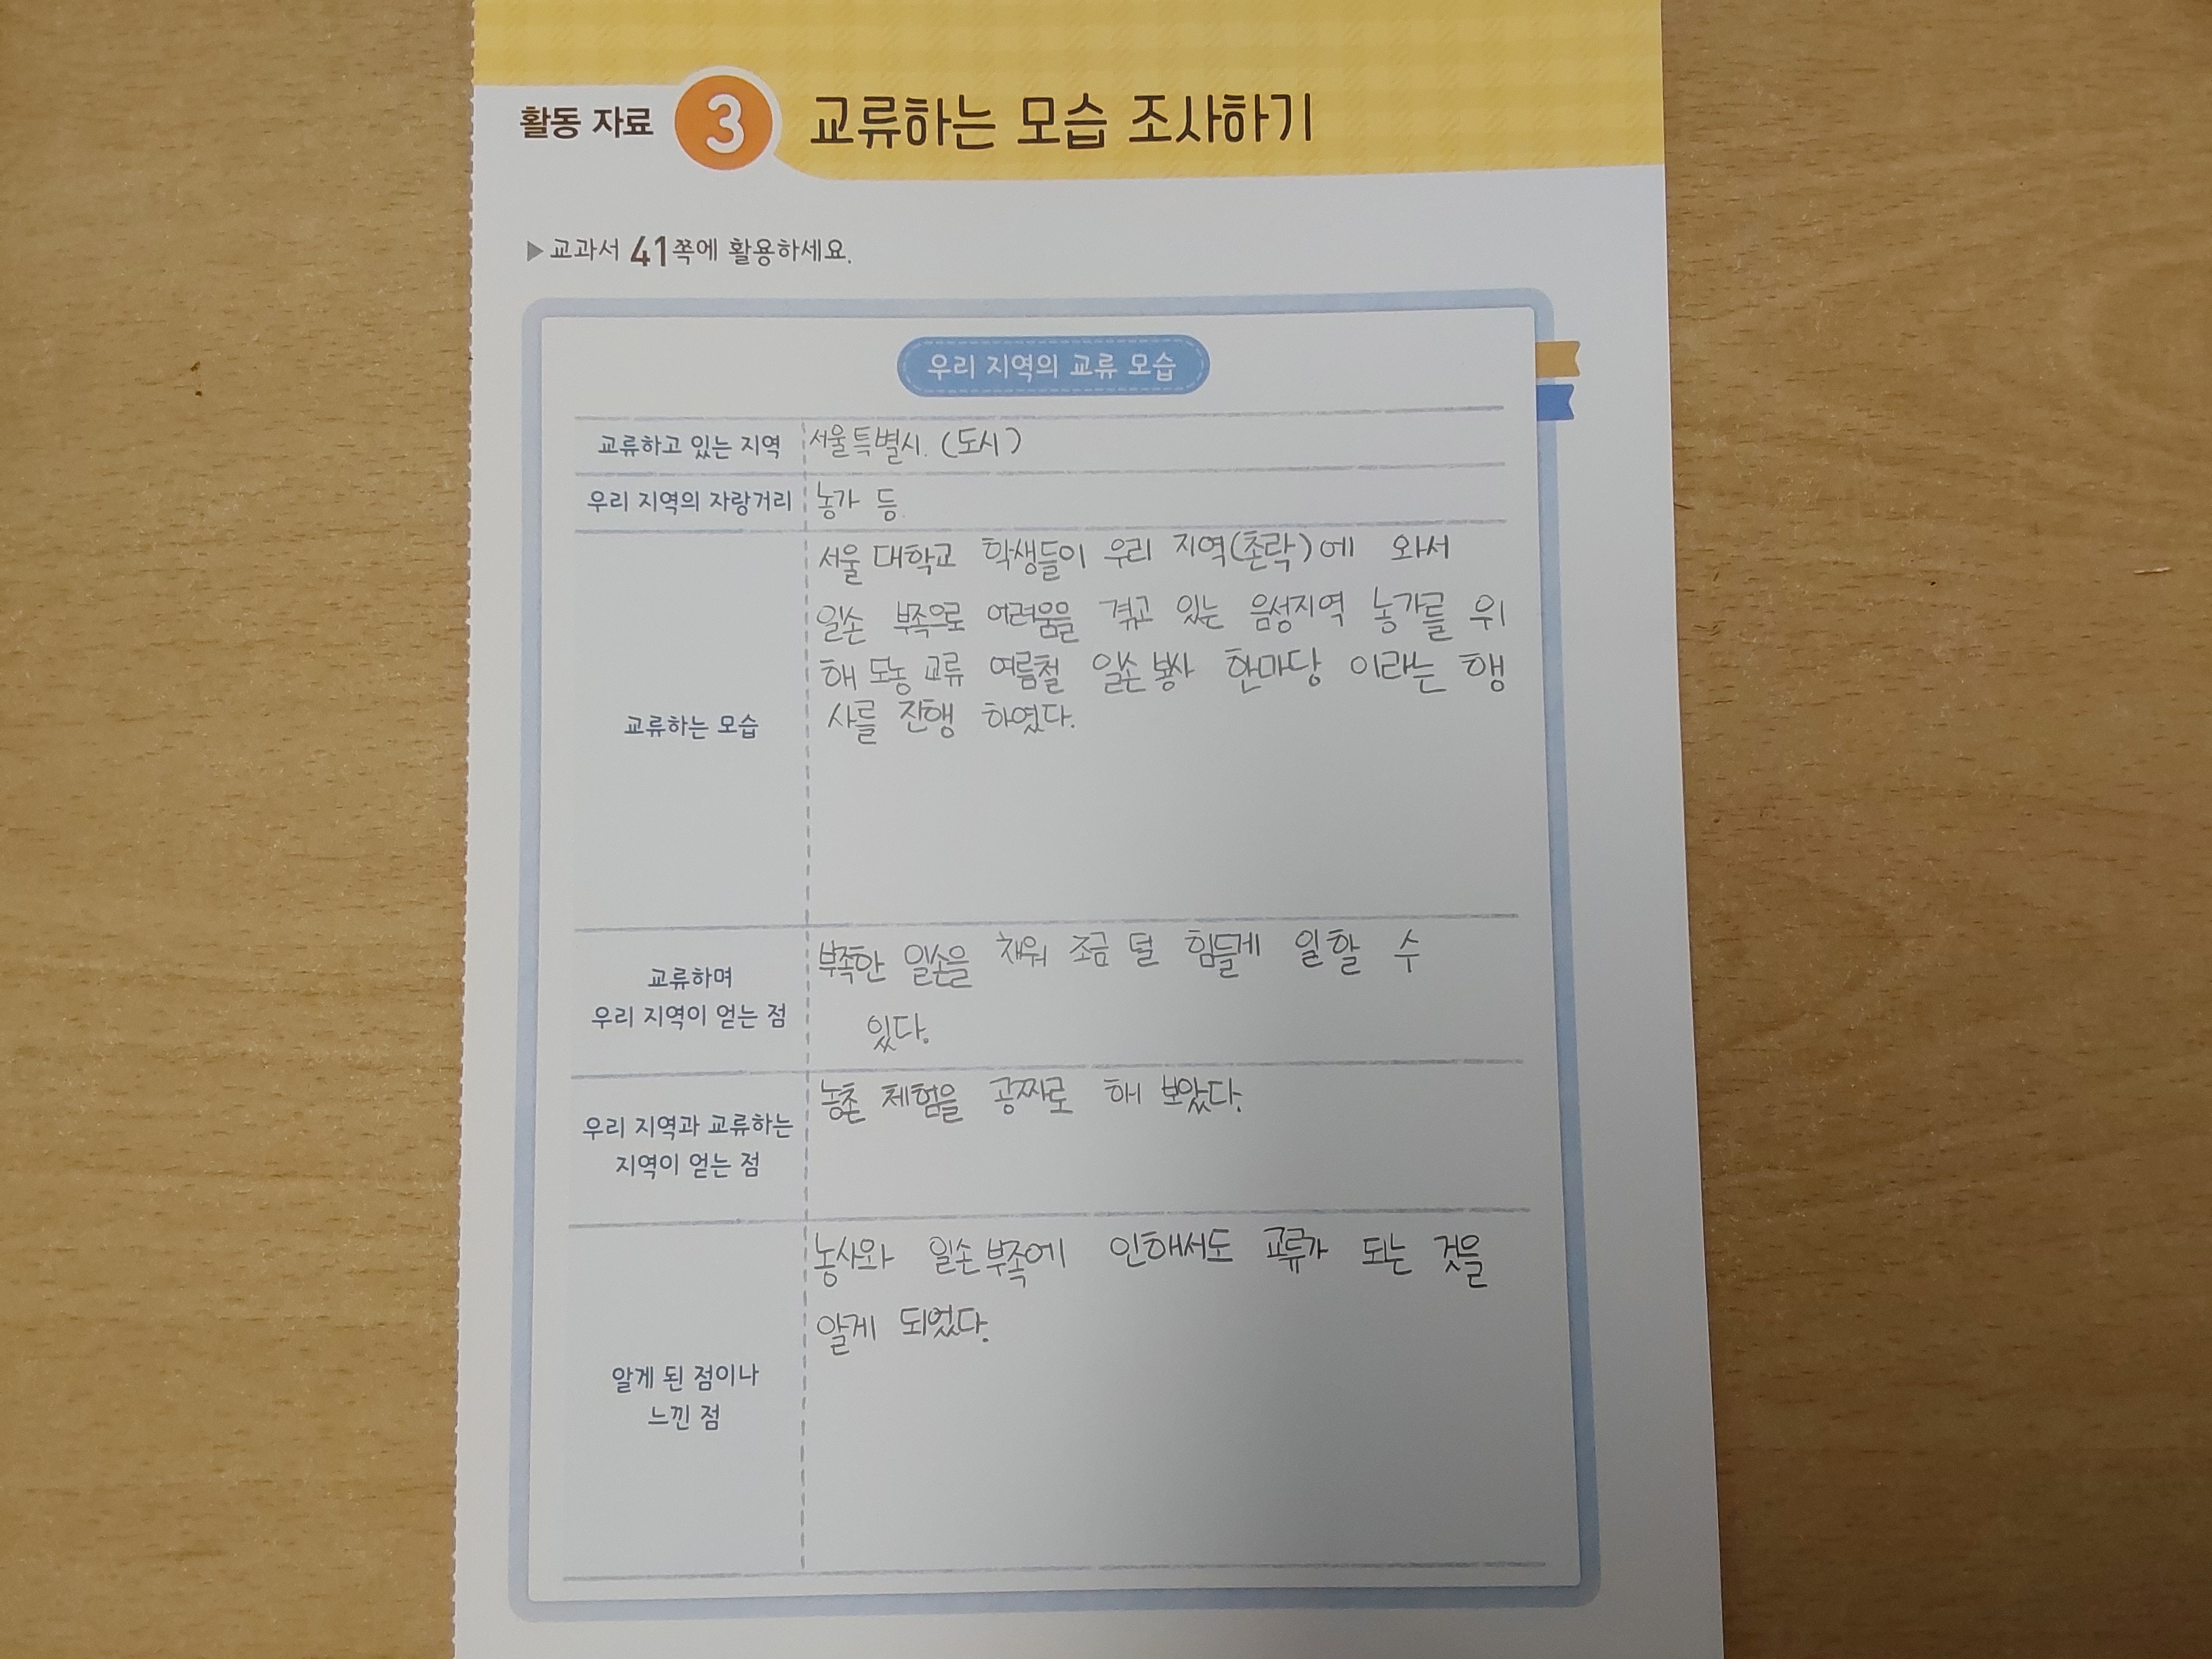 활동 자료 3 교류하는 모습 조사하기
▶교과서 41쪽에 활용하세요.
우리 지역의 교류 모습
교류하고 있는 지역 서울특별시. (도시)
우리 지역의 자랑거리 농가 등
교류하는 모습
서울 대학교 학생들이 우리 지역(촌락)에 와서
일손 부족으로 어려움을 겪고 있는 음성지역 농가를 위
해 도농 교류 여름철 일손 봉사 한마당 이라는 행
사를 진행 하였다.
교류하며
우리 지역이 얻는 점
부족한 일손을 채워 조금 덜 힘들게 일할 수
있다.
우리 지역과 교류하는
지역이 얻는 점
농촌 체험을 공짜로 해 보았다.
알게 된 점이나
느낀 점
농사와 일손 부족에 인해서도 교류가 되는 것을
알게 되었다.